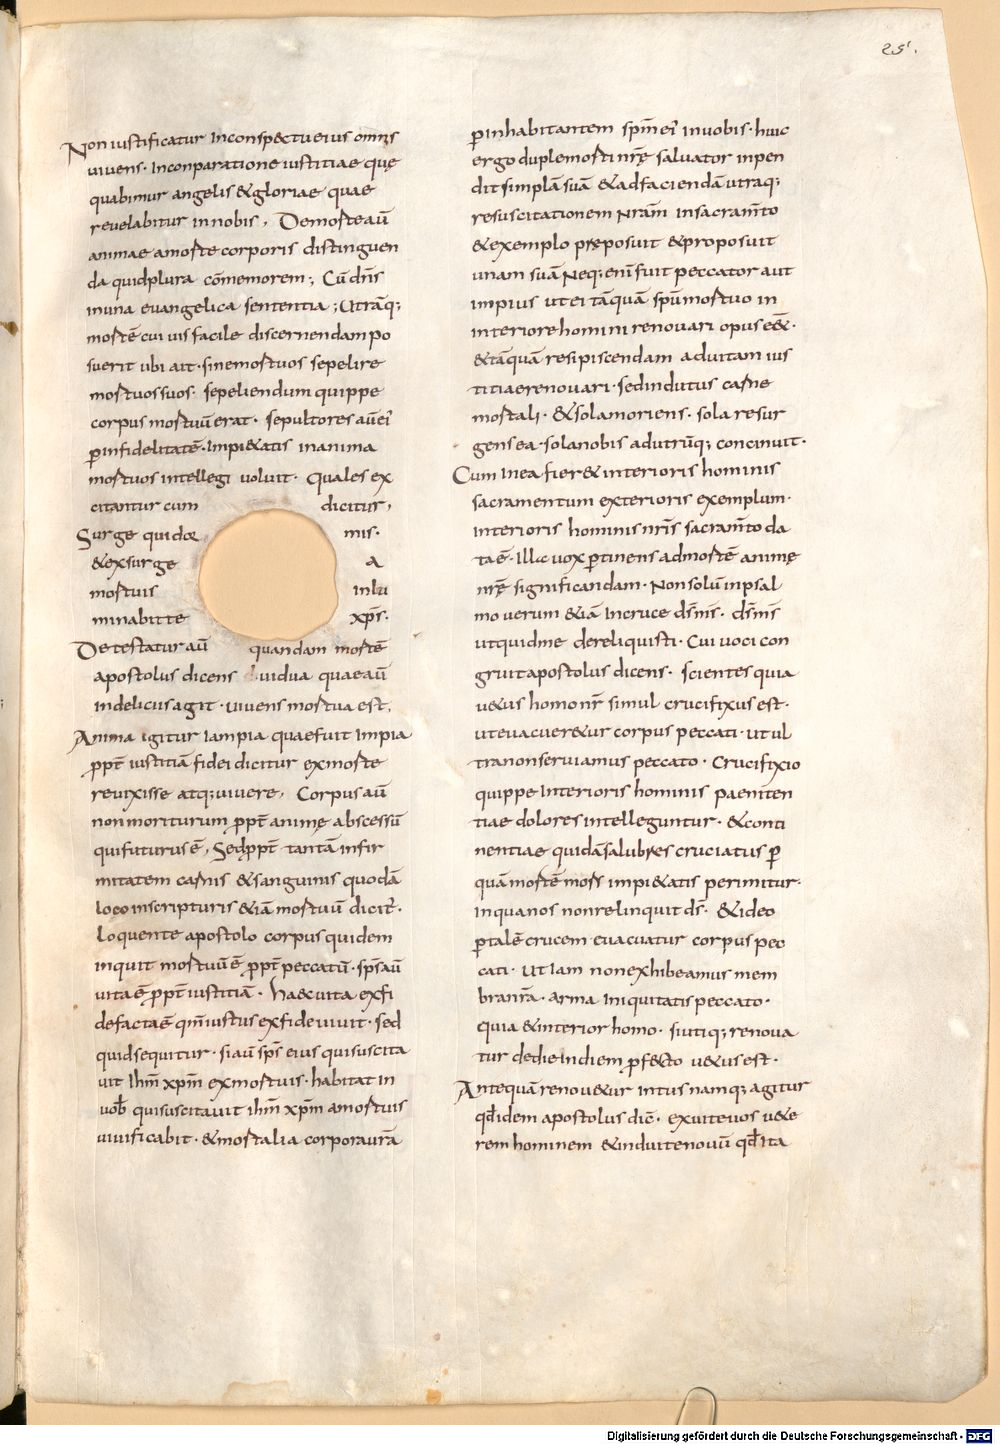 25.
Non iustificatur inconspectu eius omnis
uiuens. Inconparatione iustitiae quę
quabimur angelis & gloriae quae
reuelabitur innobis. Demorte aū
animae amorte corporis distinguen
da quid plura cōmemorem; Cū dn̄s
inuna euangelica sententia; Utrāq;
mortē cui uis facile discernendam po
suerit ubi ait. sine mortuos sepelire
mortuos suos. sepeliendum quippe
corpus mortuū erat. sepultores aū ei
p infidelitatē. Impi&atis inanima
mortuos intellegi uoluit. Quales ex
citantur cum dicitur,
Surge qui dor mis.
& exsurge a
mortuis inlu
minabit te xp̄s.
Detestatur aū quandam mortē
apostolus dicens uidua quae aū
indeliciis agit. uiuens mortua est.
Anima igitur iam pia quae fuit impia
ppt̄ iustitiā fidei dicitur exmorte
reuixisse atq; uiuere. Corpus aū
non moriturum ppt̄ animę abscessū
qui futurus ē. Sed ppt̄ tantā infir
mitatem carnis & sanguinis quodā
loco inscripturis &iā mortuū dicit̄.
Loquente apostolo corpus quidem
inquit mortuū ē ppt̄ peccatū. sp̄s aū
uita ē ppt̄ iustitiā. haec uita ex fi
de facta ē qm̄ iustus ex fide uiuit. sed
quid sequitur. si aū sp̄s eius qui suscita
uit ihm̄ xpm̄ exmortuis. habitat in
uob̄ qui suscitauit ihm̄ xpm̄ amortuis
uiuificabit. & mortalia corpora ur̄a
p inhabitantem sp̄m ei inuobis. huic
ergo duple morti nr̄ę saluator inpen
dit simplā suā & adfaciendā utraq;
resuscitationem nr̄am insacram̄to
& exemplo pręposuit & proposuit
unam suā Neq; eni fuit peccator aut
impius ut ei tāquā spū mortuo in
interiore homini renouari opus ess&.
& tāquā resipiscendam aduitam ius
titiae renouari. sed indutus carne
mortali. & sola moriens. sola resur
gens ea. sola nobis adutrūq; concinuit.
Cum inea fier& interioris hominis
sacramentum exterioris exemplum.
interioris hominis nr̄is sacram̄to da
ta ē. Illa uox ptinens admortē animę
nr̄ę significandam. Non solū inpsal
mo uerum &iā incruce ds̄ ms̄. ds̄ ms̄
utquid me dereliquisti. Cui uoci con
gruit apostolus dicens. scientes quia
u&us homo nr̄ simul crucifixus est.
ut euacuer&ur corpus peccati. ut ul
tra non seruiamus peccato. Crucifixio
quippe interioris hominis paeniten
tiae dolores intelleguntur. & conti
nentiae quidā salubres cruciatus p
quā mortē mors impi&atis perimitur.
inqua nos non relinquit ds̄. & ideo
p talē crucem euacuatur corpus pec
cati. ut iam non exhibeamus mem
bra nr̄a. arma iniquitatis peccato.
quia & interior homo. si utiq; renoua
tur dedie indiem pfecto u&us est.
Antequā renou&ur intus namq; agitur
qđ idem apostolus dic̄. exuite uos u&e
rem hominem & induite nouū qđ ita
Digitalisierung gefördert durch die Deutsche Forschungsgemeinschaft - DFG